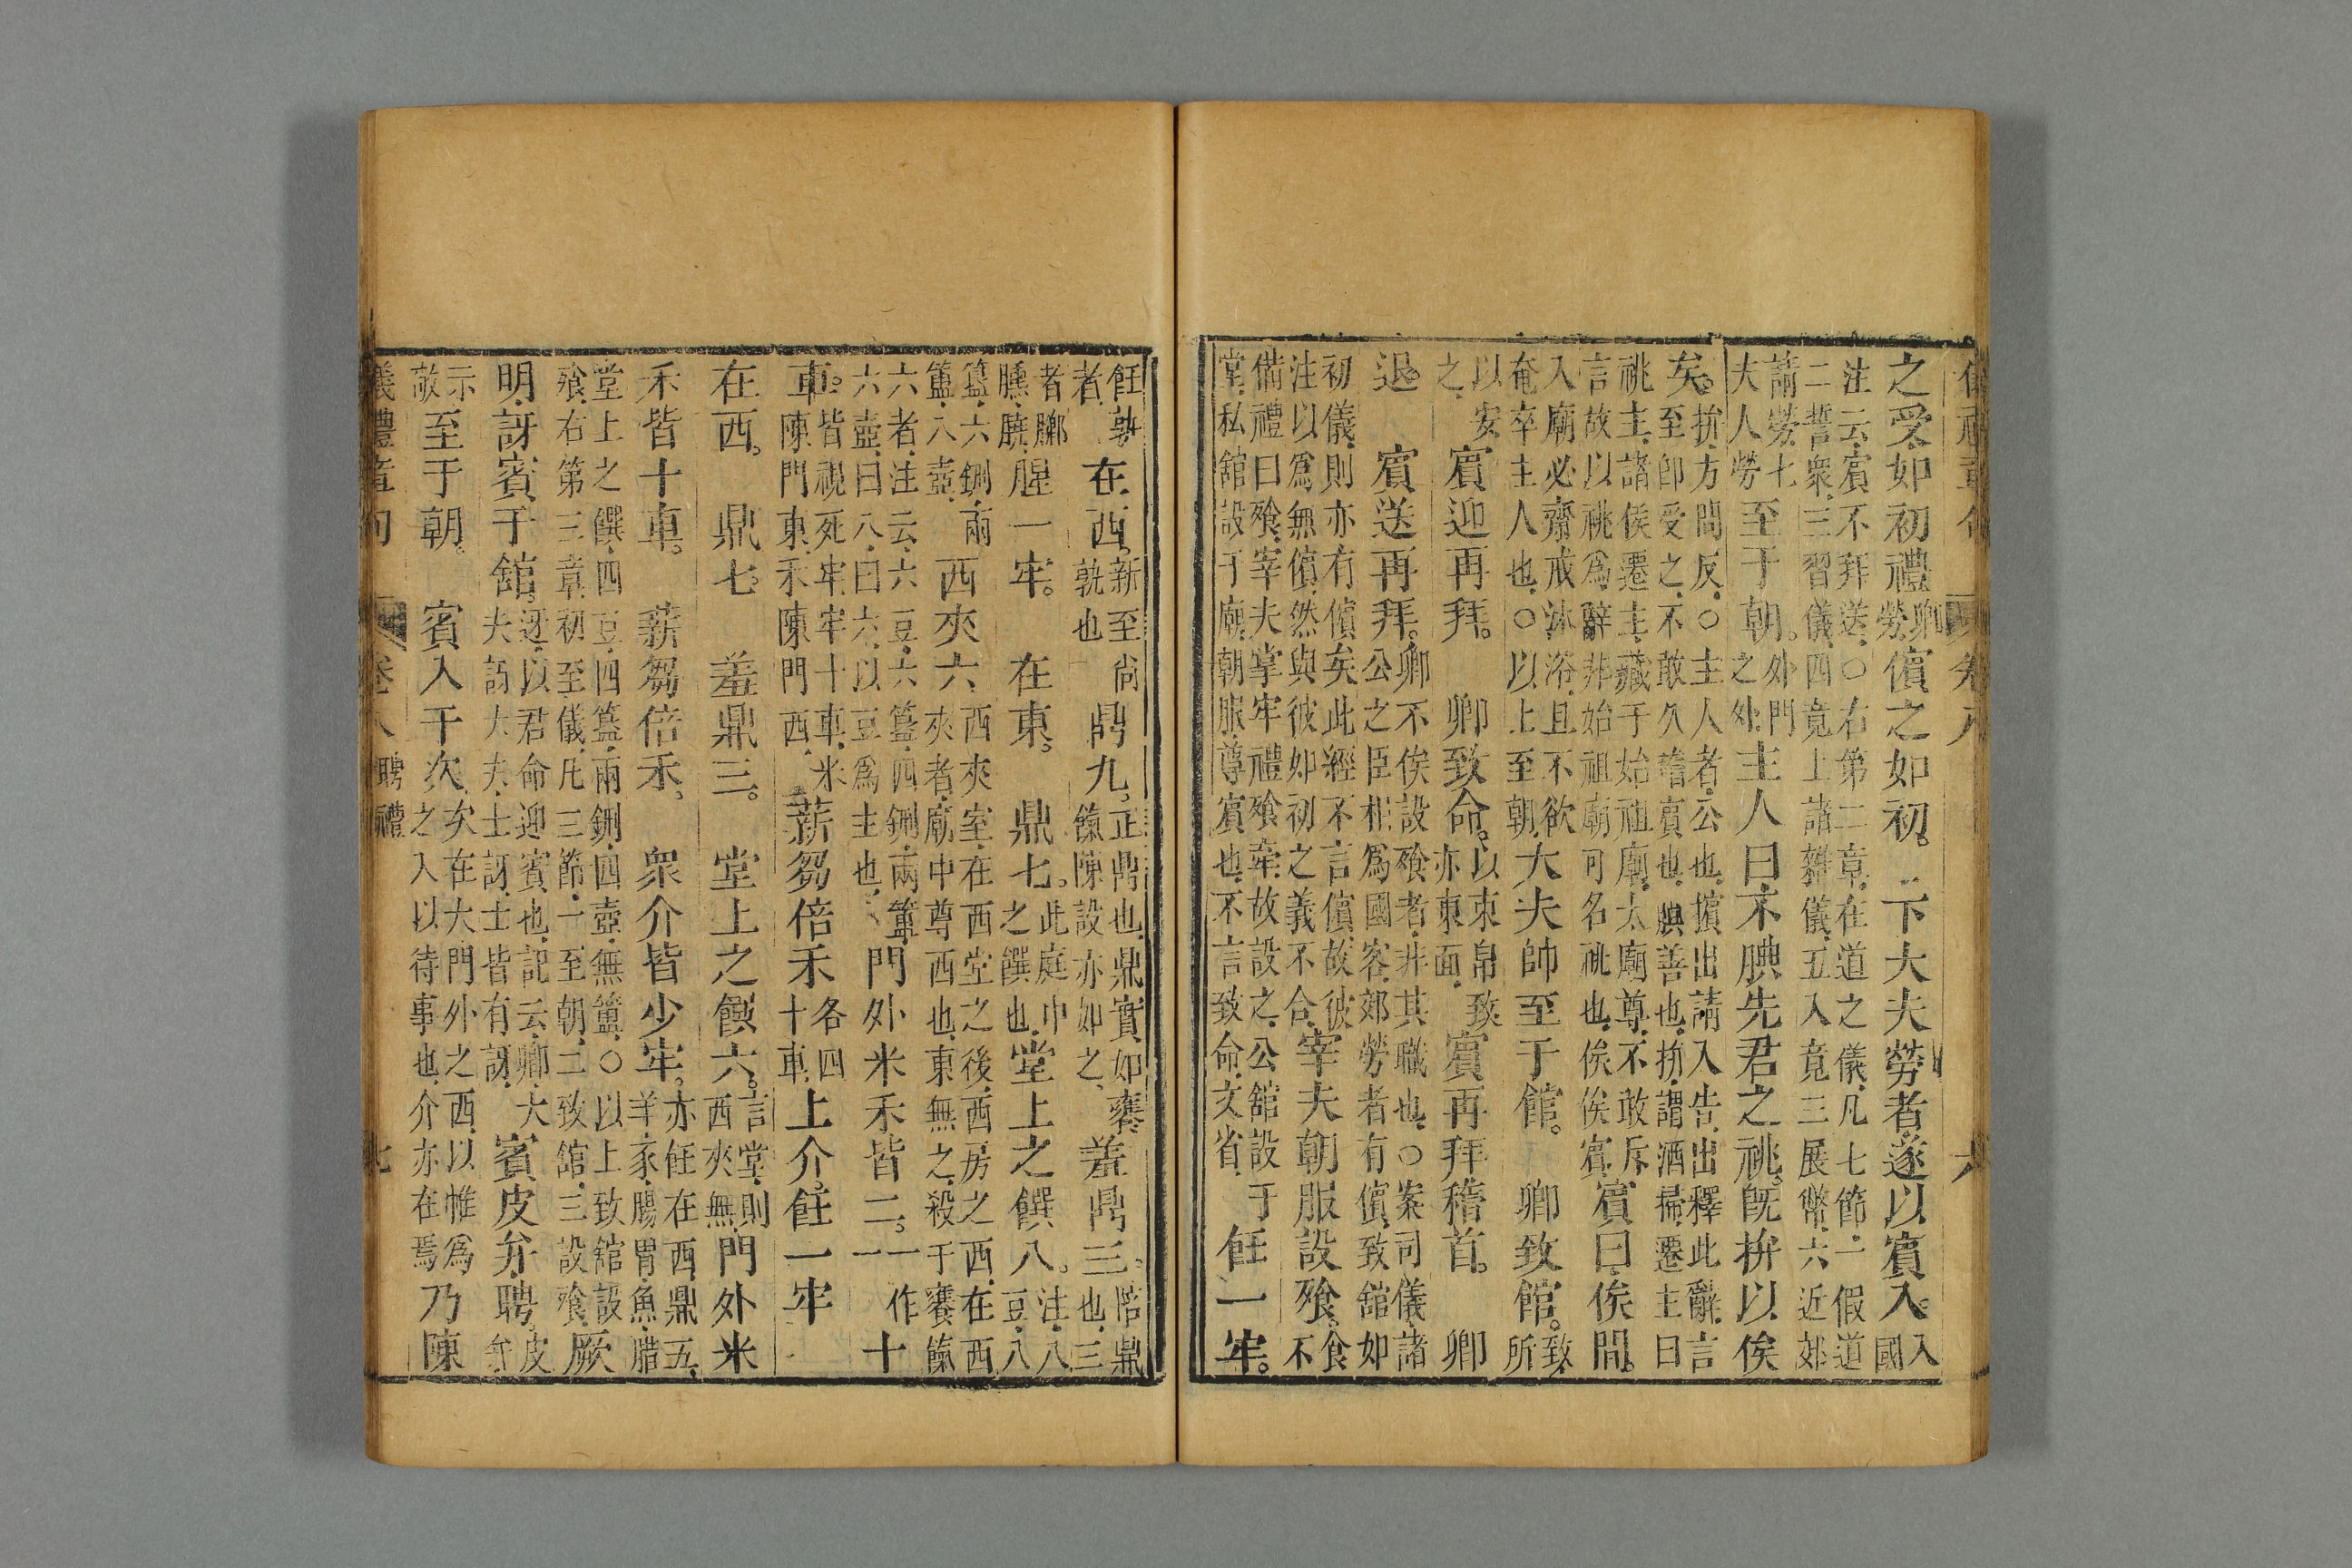 之受如初禮勞卿儐之如初下大夫勞者遂以賓入入國
注云賓不拜送○右第二章在道之儀凡七節一假道
二誓衆三習儀四竟上諸雜儀五入竟三展幣六近郊
請勞七大夫勞至于朝外門之外主人曰不腆先君之祧既拚以俟
矣拚方問反○主人者公也擯出請入告出釋此辭言
至卽受之不敢久稽賓也腆善也拚謂洒掃遷主曰
祧主諸侯遷主藏于始祖廟太廟尊不敢斥
言故以祧爲辭非始祖廟可名祧也俟俟賓賓曰俟閒
入廟必齋戒沐浴且不欲
奄卒主人也○以上至朝大夫帥至于館卿致館致所
以安之賓迎再拜卿致命以束帛致亦東面賓再拜稽首卿
退賓送再拜卿不俟設飧者非其職也○案司儀諸
公之臣相爲國客郊勞者有儐致館如
初儀則亦有儐矣此經不言儐故彼
注以爲無儐然與彼如初之義不合宰夫朝服設飧食不
備禮曰飧宰夫掌牢禮飧牽故設之公館設于
堂私館設于廟朝服尊賓也不言致命文省飪一牢
飪孰者在西新至尚孰也鼎九正鼎也鼎實如饔餼陳設亦如之羞鼎三陪鼎也三
者膷臐膮腥一牢在東鼎七此庭中之饌也堂上之饌八注八豆八
簋六鉶兩簠八壺西夾六西夾室在西堂之後西房之西在西
夾者廟中尊西也東無之殺于饔餼
六者注云六豆六簋四鉶兩簠
六壺曰八曰六以豆爲主也門外米禾皆二十一作十
車皆視死牢牢十車米陳門東禾陳門西薪芻倍禾各四十車上介飪一牢
在西鼎七羞鼎三堂上之饌六言堂則西夾無門外米
禾皆十車薪芻倍禾衆介皆少牢亦飪在西鼎五羊豕腸胃魚腊
堂上之饌四豆四簋兩鉶四壺無簠○以上致館設
飧右第三章初至儀凡三節一至朝二致館三設飧厥
明訝賓于館迓以君命迎賓也記云卿大夫訝大夫士訝士皆有訝賓皮弁聘皮弁
示敬至于朝賓入于次次在大門外之西以帷爲之入以待事也介亦在焉乃陳
儀禮章句 卷八 聘禮 七